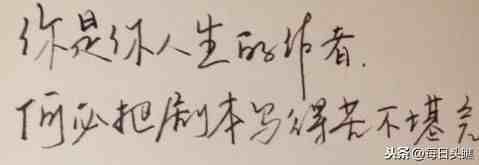 你是你人生的作者.
何必把剧本写得苦不堪言
头条 @每日头瞧